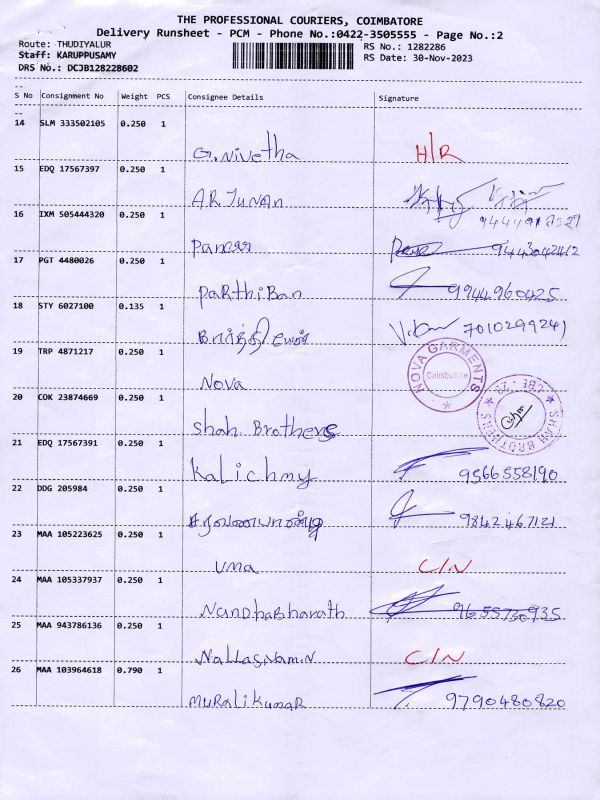 THE PROFESSIONAL COURIERS, COIMBATORE
Delivery Runsheet - PCM - Phone No.:0422-3505555 - Page No.:2
Route: THUDIYALUR RS No.: 1282286
Staff: KARUPPUSAMY RS Date: 30-Nov-2023
DRS No.: DCJB128228602
S No Consignment No Weight PCS Consignee Details Signature
14 SLM 333502105 0.250 1
G. Nivetha H/R
15 EDQ 17567397 0.250 1
ARJUNAN
16 IXM 505444320 0.250 1
9443042412
17 PGT 4480026 0.250 1
PaRthiBan 9944960425
18 STY 6027100 0.135 1
7010299241
19 TRP 4871217 0.250 1
Nova NOVA GARMENTS Coimbatore
20 COK 23874669 0.250 1
Shah Brothers SHAH BROTHERS CBE - 29
21 EDQ 17567391 0.250 1
Kalichmy 9566558190
22 DDG 205984 0.250 1
9842467121
23 MAA 105223625 0.250 1
Uma C/N
24 MAA 105337937 0.250 1
NandhaBharath 9655730935
25 MAA 943786136 0.250 1
C/N
26 MAA 103964618 0.790 1
MuRaliKumaR 9790480820